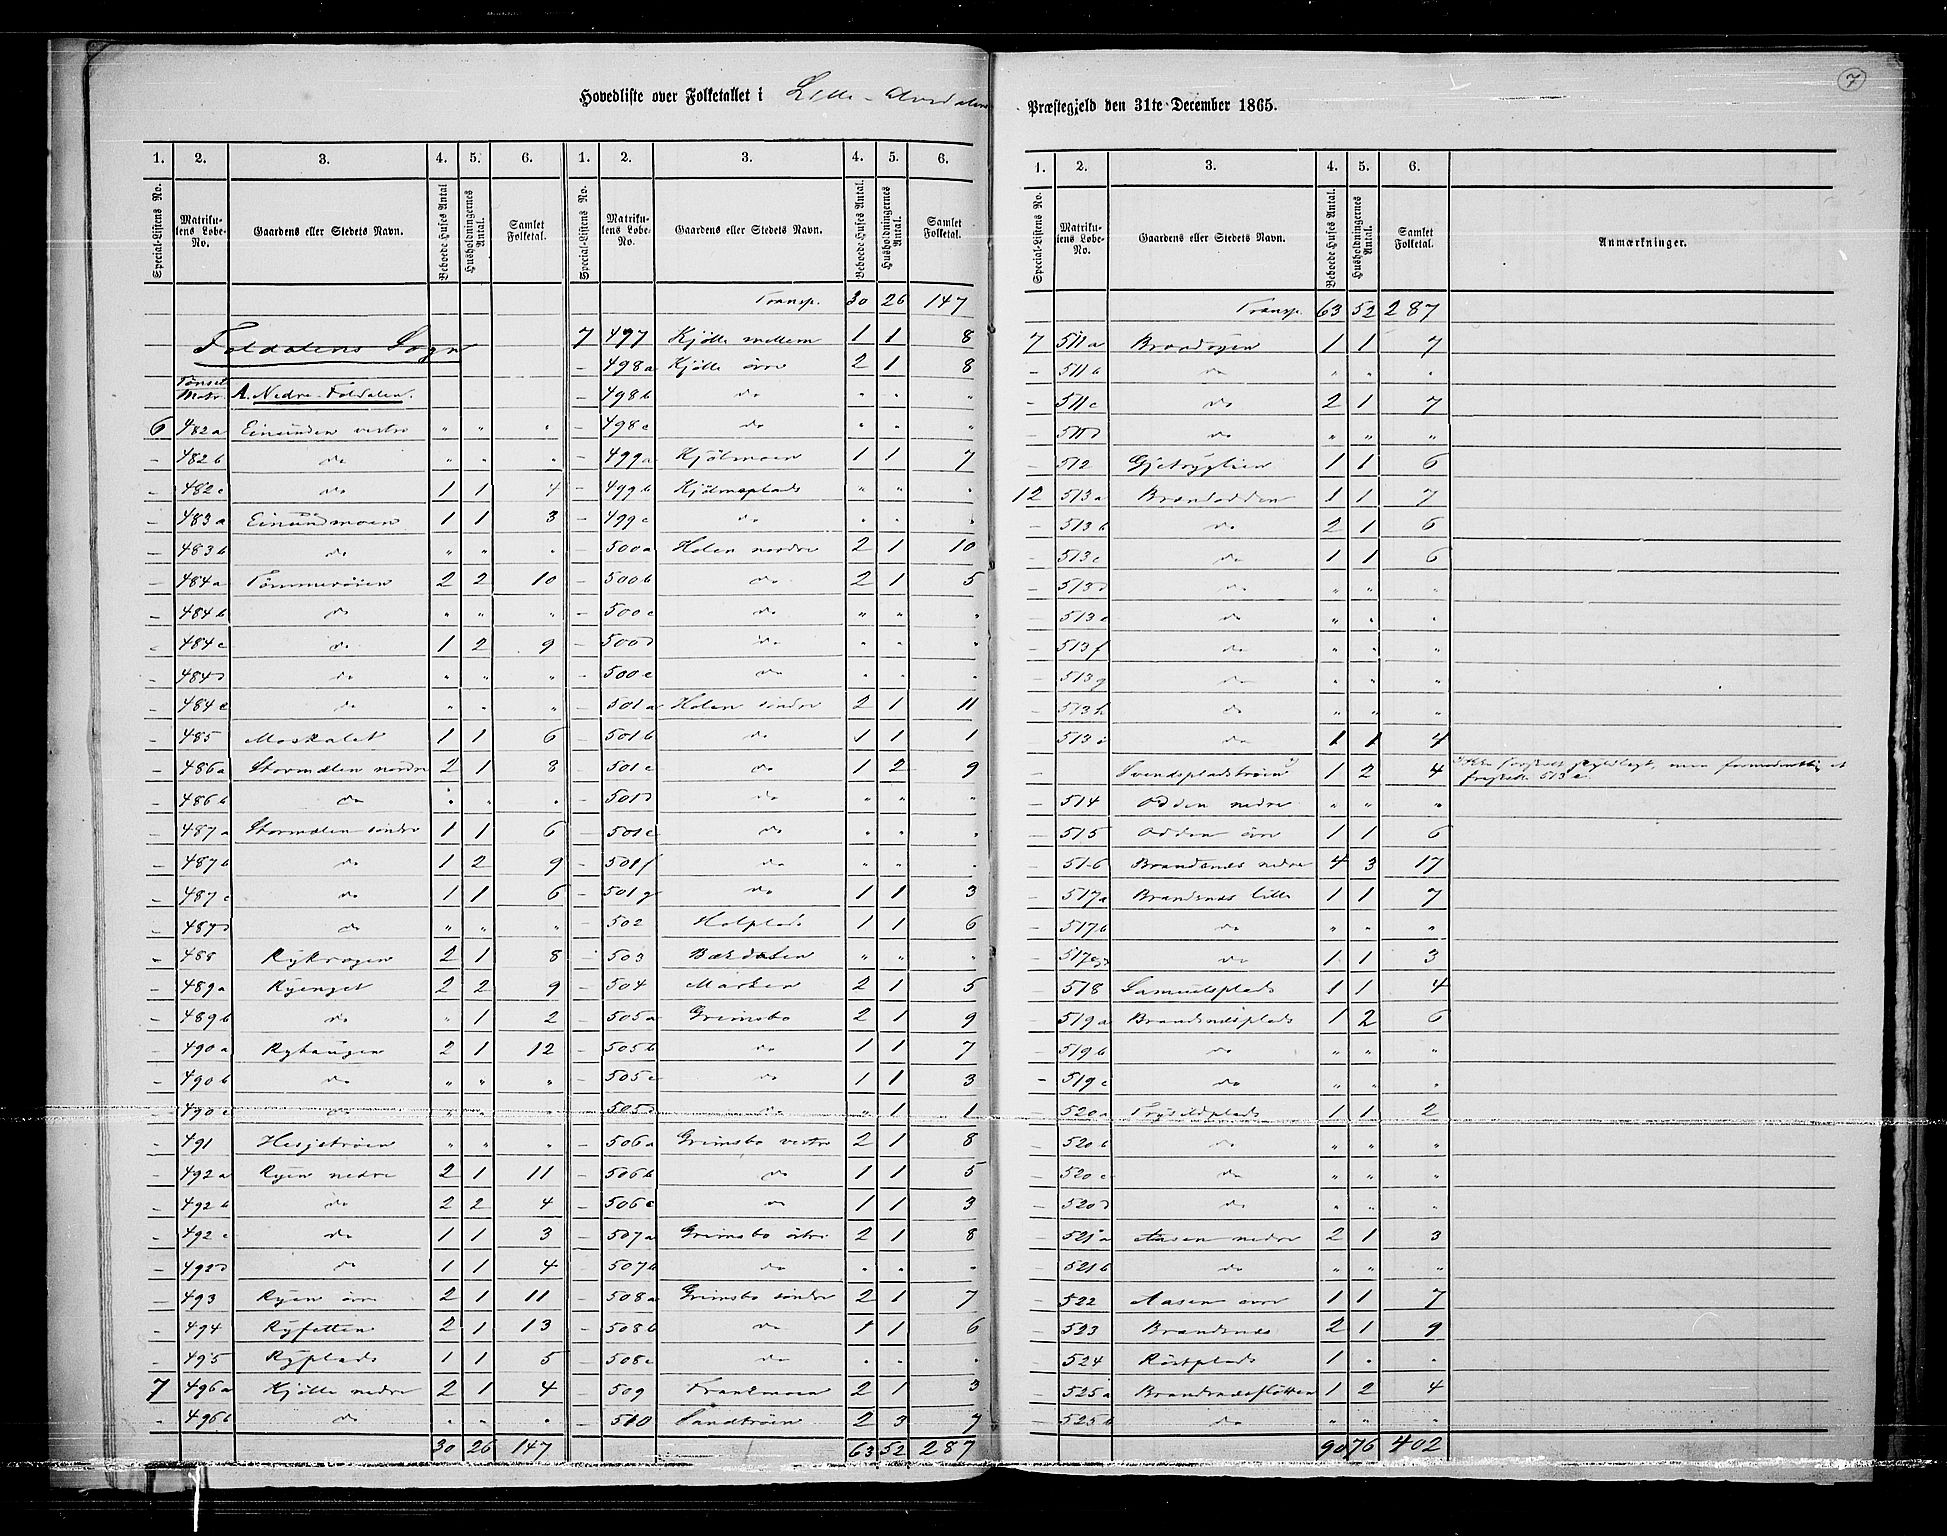 7
Hovedliste over Folketallet i Lille-Elvedalens Præstegjeld den 31te December 1865.
1. 2. 3. 4. 5. 6.
Special-Listens No. Matrikulens Løbe-No. Gaardens eller Stedets Navn. Beboede Huses Antal Husholdningernes Antal. Samlet Folketal.
Foldalens Sogn
Tønset Matr. A. Nedre-Foldalen.
6 482a Einunden vestre " " "
- 482b do " " "
- 482c do 1 1 4
- 483a Einundmoen 1 1 3
- 483b do " " "
- 484a Tømmerøien 2 2 10
- 484b do " " "
- 484c do 1 2 9
- 484d do " " "
- 484e do " " "
- 485 Moskalet 1 1 6
- 486a Stormælen nordre 2 1 8
- 486b do " " "
- 487a Stormælen søndre 1 1 6
- 487b do 1 2 9
- 487c do 1 1 6
- 487d do " " "
- 488 Rykrogen 2 1 8
- 489a Ryenget 2 2 9
- 489b do " 1 2
- 490a Ryhaugen 2 1 12
- 490b do " " "
- 490c do " " "
- 491 Hesjetrøen " " "
- 492a Ryen nedre 2 1 11
- 492b do 2 2 4
- 492c do 1 1 3
- 492d do 1 1 4
- 493 Ryen øvre 2 1 11
- 494 Ryfetten 2 1 13
- 495 Ryplads 1 1 5
7 496a Kjølle nedre 2 1 4
- 496b do " " "
30 26 147
1. 2. 3. 4. 5. 6.
Special-Listens No. Matrikulens Løbe-No. Gaardens eller Stedets Navn. Beboede Huses Antal Husholdningernes Antal. Samlet Folketal.
Transp. 30 26 147
7 497 Kjølle mellem 1 1 8
- 498a Kjølle øvre 2 1 8
- 498b do " " "
- 498c do " " "
- 499a Kjølmoen 1 1 7
- 499b Kjølmoplads " " "
- 499c do " " "
- 500a Holen nordre 2 1 10
- 500b do 2 1 5
- 500c do " " "
- 500d do " " "
- 500e do " " "
- 501a Holen søndre 2 1 11
- 501b do 1 1 1
- 501c do 1 2 9
- 501d do " " "
- 501e do " " "
- 501f do " " "
- 501g do 1 1 3
- 502 Holplads 1 1 6
- 503 Bækdalen " " "
- 504 Marken 2 1 5
- 505a Grimsbo 2 1 9
- 505b do 1 1 7
- 505c do 1 1 3
- 505d do " 1 1
- 506a Grimsbo vestre 2 1 8
- 506b do 1 1 5
- 506c do 1 1 3
- 507a Grimsbo østre 2 1 8
- 507b do " " "
- 508a Grimsbo søndre 2 1 7
- 508b do 1 1 6
- 508c do " " "
- 509 Frankmoen 2 1 3
- 510 Sandtrøen 2 3 7
63 52 287
1. 2. 3. 4. 5. 6.
Special-Listens No. Matrikulens Løbe-No. Gaardens eller Stedets Navn. Beboede Huses Antal. Husholdningernes Antal. Samlet Folketal. Anmærkninger.
Transp. 63 52 287
7 511a Brandvolden 1 1 7
- 511b do " " "
- 511c do 2 1 7
- 511d do " " "
- 512 1 1 6
12 513a Brandodden 1 1 7
- 513b do 2 1 6
- 513c do 1 1 6
- 513d do " " "
- 513e do " " "
- 513f do " " "
- 513g do " " "
- 513h do " " "
- 513i do 1 1 4
- Svendspladstrøen 1 2 4 Ikke særskilt skyldlagt, men formodentlig et fraskilt 513a.
- 514 Odden nedre " " "
- 515 Odden øvre 1 1 6
- 516 Brandsnes nedre 4 3 17
- 517a Brandsnes lille 1 1 7
- 517b do " " "
- 517c do 1 1 3
- 518 Samuelsplads 1 1 4
- 519a Brandsnesplads 1 2 6
- 519b do " " "
- 519c do " " "
- 520a Frysildplads 1 1 2
- 520b do " " "
- 520c do " " "
- 520d do " " "
- 521a Aasen nedre 2 1 3
- 521b do " " "
- 522 Aasen øvre 1 1 7
- 523 Brandsnes 2 1 9
- 524 Röstplads 1 " "
- 525a Brandsnesfløtten 1 2 4
- 525b do " " "
90 76 402